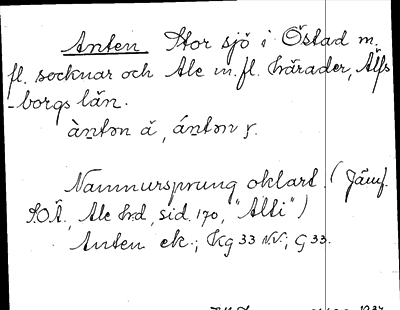 Anten Stor sjö i Östad m.
fl. socknar och Ale m.fl. härader, Älfs
-borgs län.
àntǝn ă, ántǝn
Namnursprung oklart. (Jämf.
S.O.Ä., Ale hd, sid. 170, "Alli")
Anten ek.; Kg 33 N.V.; G 33.